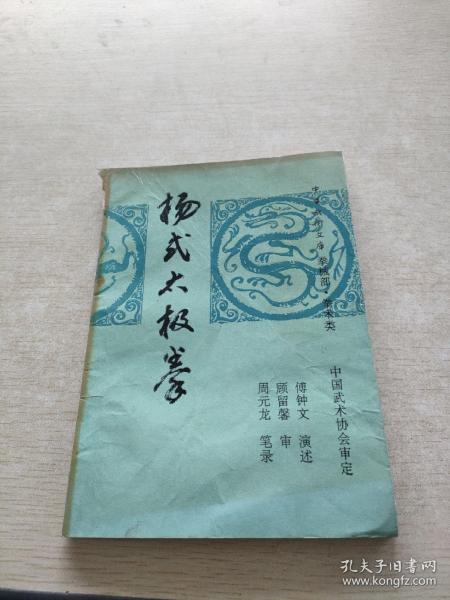 杨式太极拳
中华武术文库·拳械部·拳术类
中国武术协会审定
傅钟文 演述
顾留馨 审
周元龙 笔录
孔夫子旧书网
www.kongfz.com